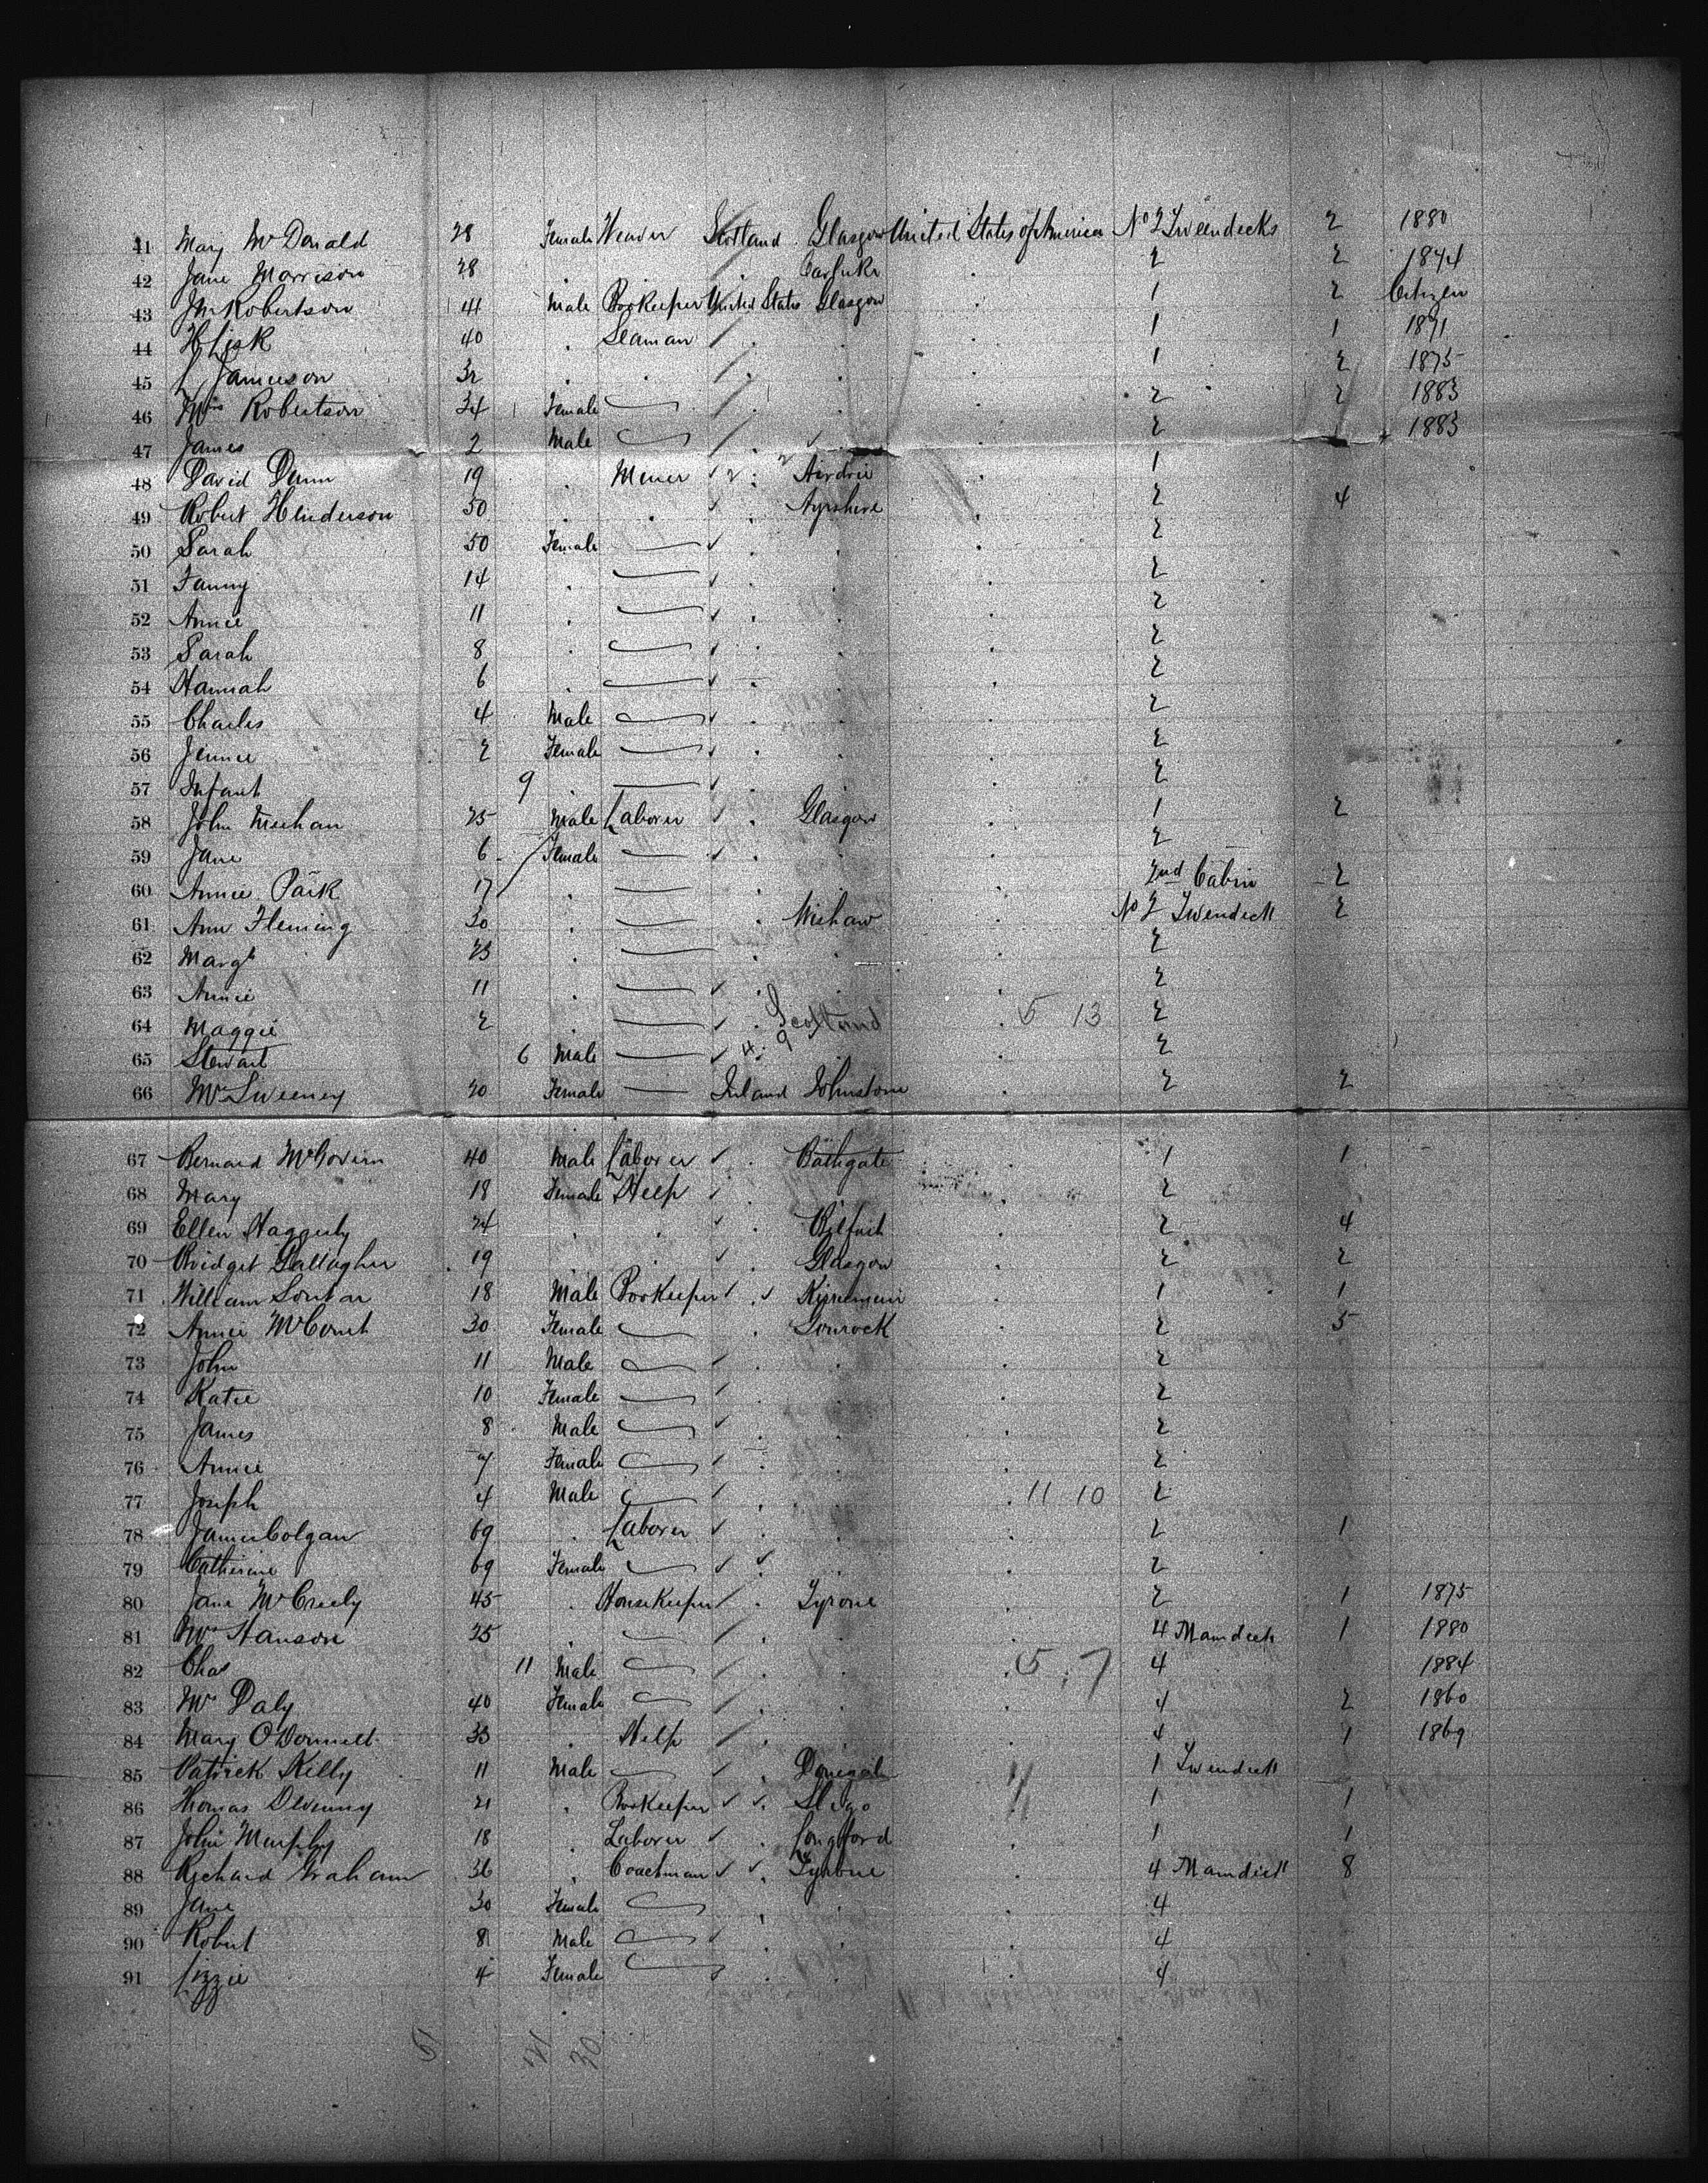 41 Mary McDonald 28 Female Weaver Scotland Glasgow United States of America No 2 Tweendecks 2 1880
42 Jane Morrison 28 . . . Carluke . 2 2 1874
43 Jn Robertson 41 Male Bookeeper United States Glasgow 1 2 Citizen
44 40 . Seaman . . 1 1 1871
45 J Jamieson 32 . . . . 1 2 1875
46 Mrs Robertson 34 Female . . 2 2 1883
47 James 2 Male . . 2 1883
48 David Dunn 19 . Miner . Airdrie . 1
49 Robert Henderson 50 . . . Ayrshire . 2 4
50 Sarah 50 Female . . . 2
51 Fanny 14 . . . . 2
52 Annie 11 . . . . 2
53 Sarah 8 . . . . 2
54 Hannah 6 . . . . 2
55 Charles 4 Male . . . 2
56 Jennie 2 Female . . . 2
57 Infant 9 . . . . 2
58 John Meehan 25 Male Laborer . Glasgow . 1 2
59 Jane 6 Female . . . 2
60 Annie Park 17 . . . . 2nd Cabin 2
61 Ann Fleming 30 . . Wishaw . No 2 Tweendeck 2
62 Margt 23 . . . . 2
63 Annie 11 . . . . 2
64 Maggie 2 . . Scotland . 5 13 2
65 Stewart 6 Male 4 9 . 2
66 McSweeney 20 Female Ireland Johnstone . 2 2
67 Bernard McGovern 40 Male Laborer . Bathgate . 1 1
68 Mary 18 Female Help . . . 2
69 Ellen Haggerty 24 . . . Belfast . 2 4
70 Bridget Gallagher 19 . . . Glasgow . 2 2
71 William Soutar 18 Male Bookeeper . Kirriemuir . 1 1
72 Annie McCourt 30 Female . Gourock . 2 5
73 John 11 Male . . . 2
74 Katie 10 Female . . . 2
75 James 8 Male . . . 2
76 Annie 7 Female . . . 2
77 Joseph 4 Male . . . 11 10 2
78 James Colgan 69 . Laborer . . . 2 1
79 Catherine 69 Female . . . 2
80 Jane McCreely 45 . Housekeeper . Tyrone . 2 1 1875
81 Mrs Hanson 25 . . . . 4 Maindeck 1 1880
82 Chas 11 Male . . . 5 7 4 1884
83 Mrs Daly 40 Female . . . 4 2 1860
84 Mary O'Donnell 33 . Help . . . 4 1 1869
85 Patrick Kelly 11 Male . Donegal 1 Tweendeck
86 Thomas Devenny 21 . Bookeeper . Sligo 1 1
87 John Murphy 18 . Laborer . Longford . 1 1
88 Richard Graham 36 . Coachman . Tyrone . 4 Maindeck 8
89 Jane 30 Female . . . 4
90 Robert 8 Male . . . 4
91 Lizzie 4 Female . . . 4
30